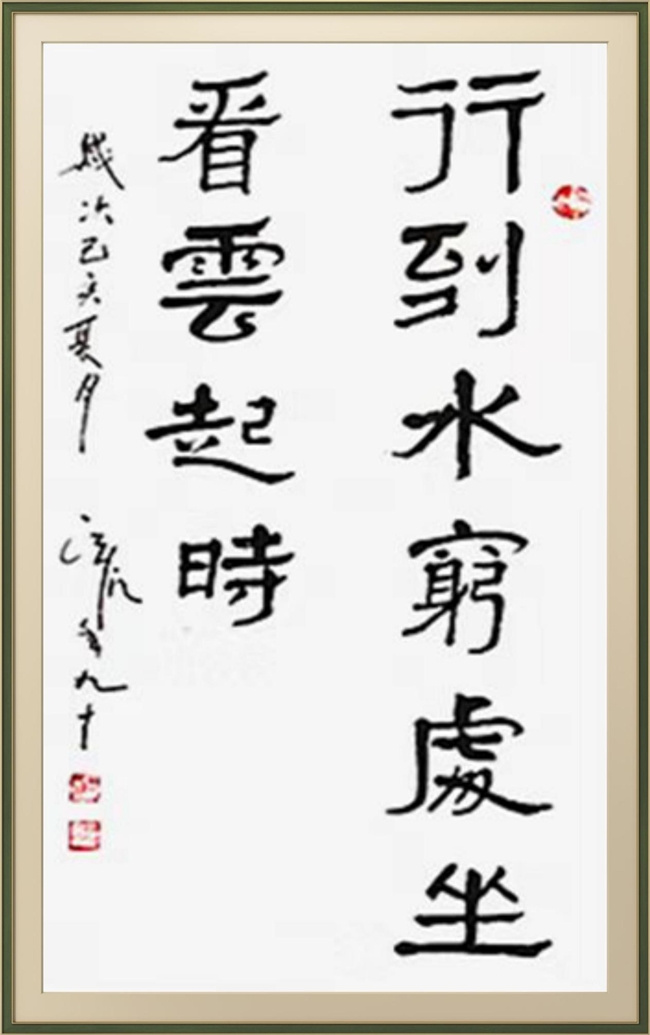 行到水窮處坐
看雲起時
歲次己亥夏月
年九十